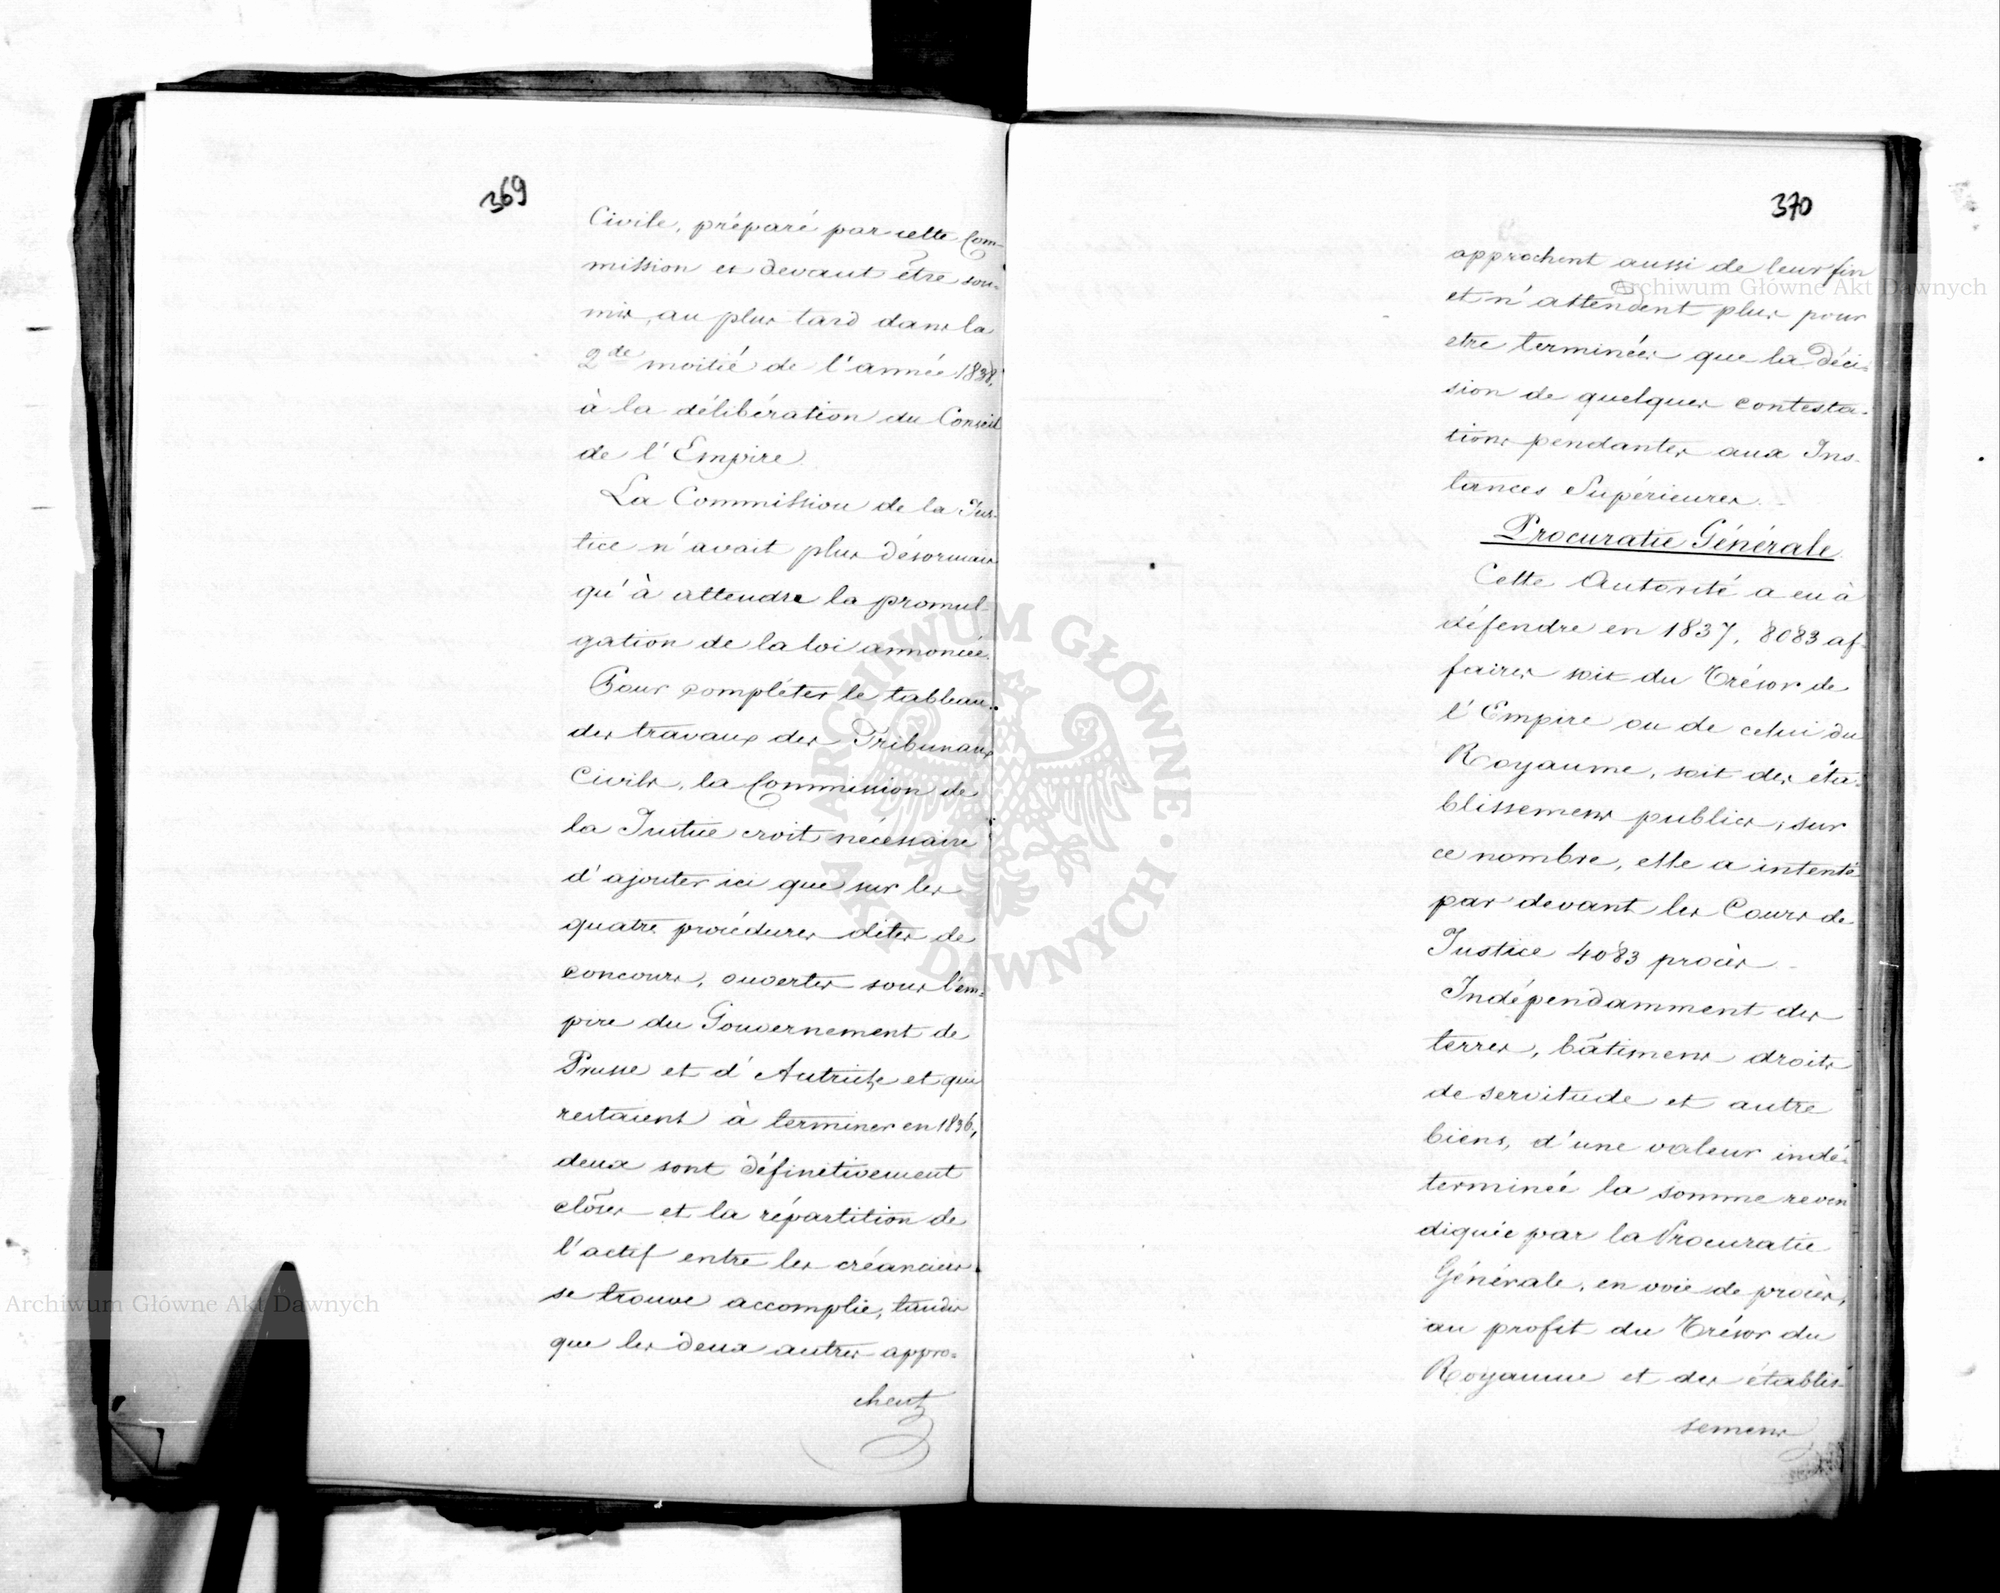 369
Civile, préparé par cette Com-
mission et devant être sou-
mis, au plus tard dans la
2de moitié de l'année 1838,
à la délibération du Conseil
de l'Empire.
La Commission de la Jus-
tice n'avait plus désormais
qu'à attendre la promul-
gation de la loi annoncée.
Pour compléter le tableau
des travaux des Tribunaux
Civils, la Commission de
la Justice croit nécessaire
d'ajouter ici que sur les
quatre procédures dites de
concours, ouvertes sous l'em-
pire du Gouvernement de
Prusse et d'Autriche et qui
restaient à terminer en 1836,
deux sont définitivement
closes et la répartition de
l'actif entre les créanciers
se trouve accomplie, tandis
que les deux autres appro-
chent
370
approchent aussi de leur fin
et n'attendent plus pour
etre terminées que la déci-
sion de quelques contesta-
tions pendantes aux Ins-
tances Supérieures.
Procuratie Générale.
Cette Autorité a eu à
défendre en 1837, 8083 af-
faires soit du Trésor de
l'Empire ou de celui du
Royaume, soit des éta-
blissemens publics, sur
ce nombre, elle a intenté
par devant les Cours de
Justice 4083 procès
Indépendamment des
terres, bâtimens droits
de servitude et autre
biens, d'une valeur indé-
terminée la somme reven
diquée par la Procuratie
Générale, en voie de procès,
au profit du Trésor du
Royaume et des établis-
semens
Archiwum Główne Akt Dawnych
Archiwum Główne Akt Dawnych
ARCHIWUM GŁÓWNE AKT DAWNYCH